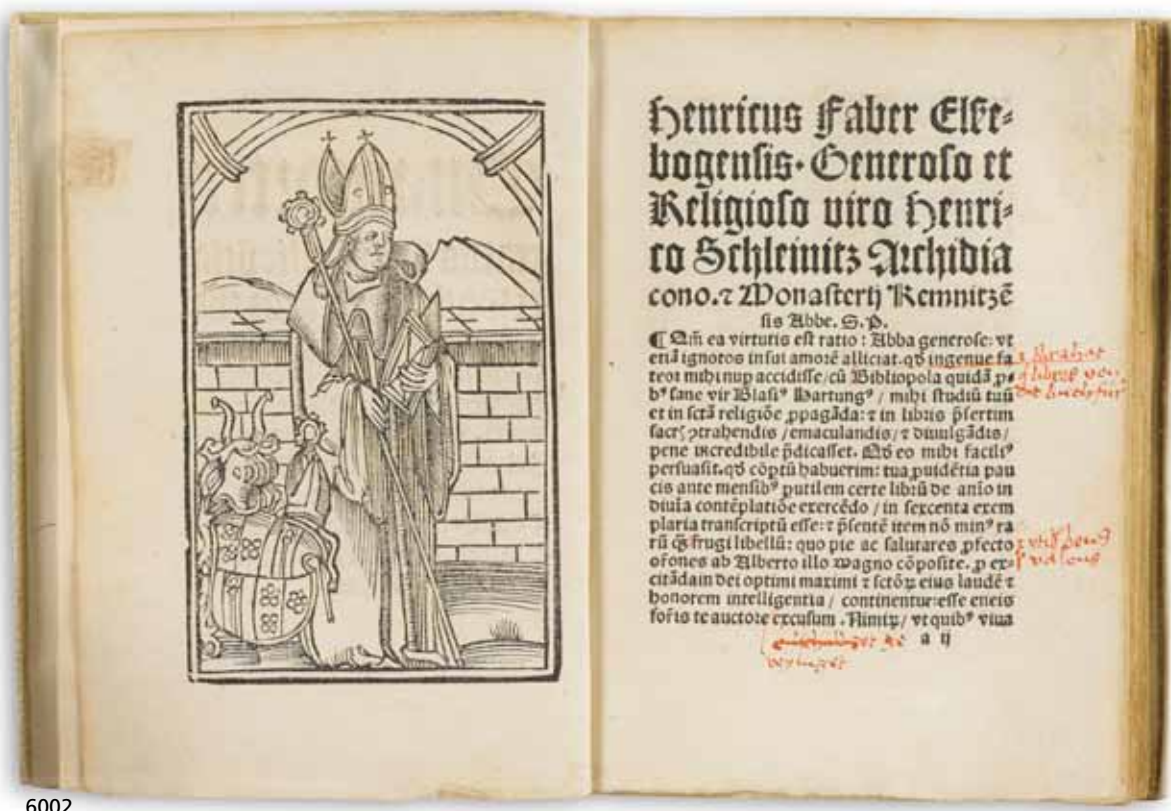 Henricus Faber Elße⸗
bogensis. Generoso et
Religioso viro Henri⸗
co Schleinitz Archidia
cono. ⁊ Monasterij Kemnitzē
sis Abbe. S. P.
¶ Qm̄ ea virtutis est ratio: Abba generose: vt
etiā ignotos in sui amorē alliciat. qd̕ ingenue fa
teor mihi nup accidisse / cū Bibliopola quidā p̱
bꝰ sane vir Blasiꝰ Hartungꝰ / mihi studiū tuū
et in sctā religiōe ꝓpagāda: ⁊ in libris p̄sertim
sacr̕ ꝯtrahendis / emaculandis / ⁊ diuulgādis /
pene incredibile p̄dicasset. Qd̕ eo mihi faciliꝰ
persuasit. qd̕ cōptū habuerim: tua ꝓuidētia pau
cis ante mensibꝰ putilem certe librū de aīo in
diuīa contēplatiōe exercēdo / in sexcenta exem
plaria transcriptū esse: ⁊ p̄sentē item nō minꝰ ra
rū q̄ꝫ frugi libellū: quo pie ac salutares ꝓfecto
ōrones ab Alberto illo magno cōposite. ꝓ ex⸗
citāda in dei optimi maximi ⁊ sctōꝝ eius laudē ⁊
honorem intelligentia / continentur: esse eneis
for̄is te auctore excusum. Nimiꝝ / vt quibꝰ viua
a ij
6002